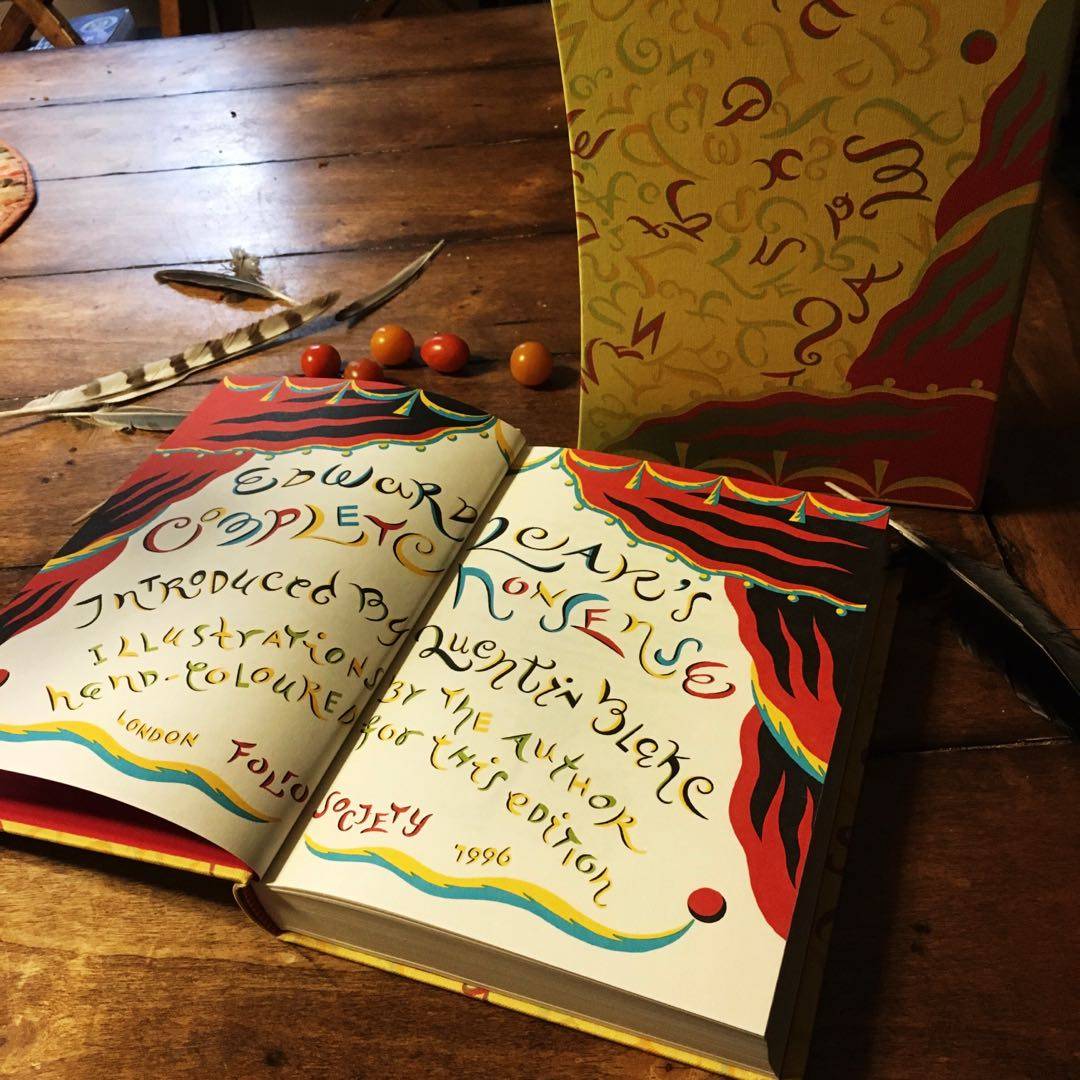 EDWARD LEAR'S
COMPLETE NONSENSE
INTRODUCED BY QUENTIN BLAKE
ILLUSTRATIONS BY THE AUTHOR
HAND-COLOURED FOR THIS EDITION
LONDON FOLIO SOCIETY 1996